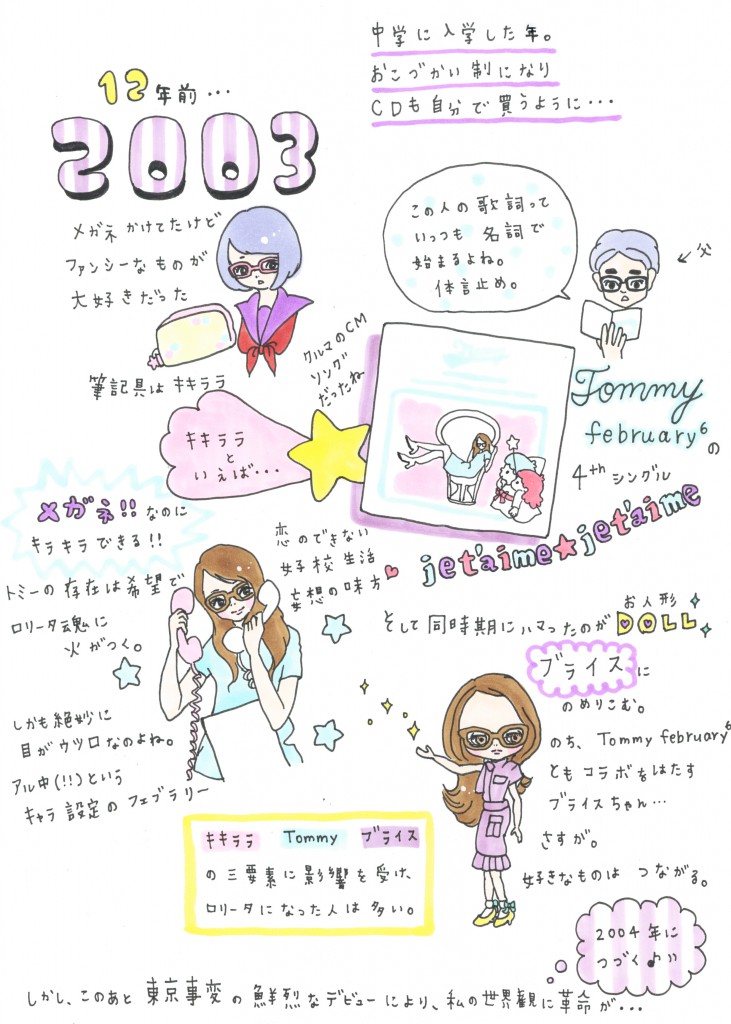 中学に入学した年。
おこづかい制になり
CDも自分で買うように…
12年前…
2003
メガネかけてたけど
ファンシーなものが
大好きだった
筆記具はキキララ
この人の歌詞って
いっつも名詞で
始まるよね。
体言止め。
←父
クルマのCM
ソング
だったね
キキララ
と
いえば…
Tommy
february⁶の
4thシングル
jet'aime★jet'aime
メガネ!!なのに
キラキラできる!!
トミーの存在は希望で
ロリータ魂に
火がつく。
恋のできない
女子校生活
妄想の味方
しかも絶妙に
目がウツロなのよね。
アル中(!!)という
キャラ設定のフェブラリー
そして同時期にハマったのが
お人形
DOLL
ブライスに
のめりこむ。
のち、Tommy february⁶
ともコラボをはたす
ブライスちゃん…
さすが。
好きなものは つながる。
キキララ Tommy ブライス
の三要素に影響を受け、
ロリータになった人は多い。
2004年に
つづく♪♪
しかし、このあと東京事変の鮮烈なデビューにより、私の世界観に革命が…